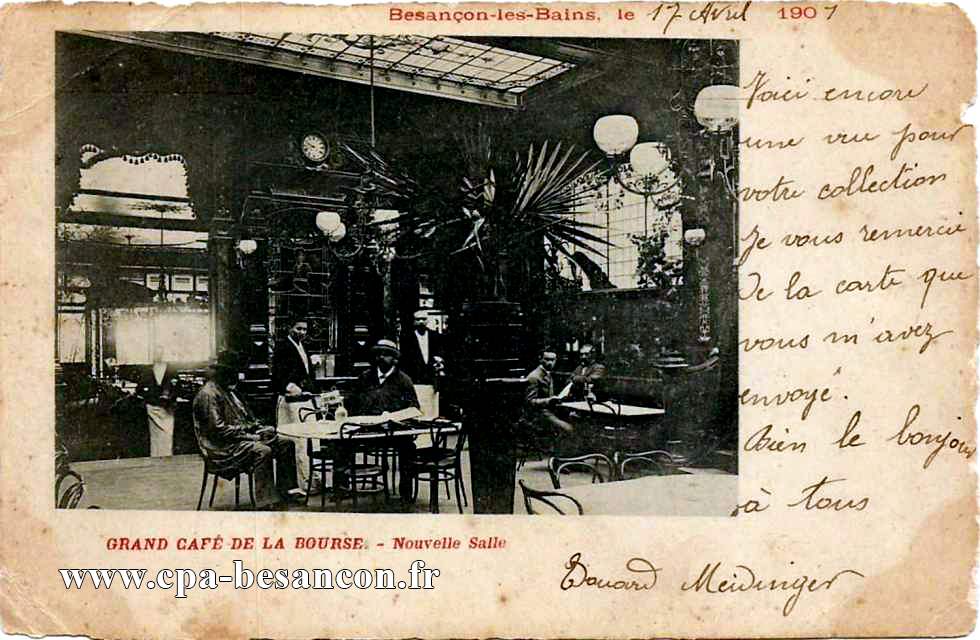 Besançon-les-Bains, le 17 Avril 1901
Voici encore
une vue pour
votre collection
Je vous remercie
De la carte que
vous m'avez
envoyé.
Bien le bonjour
à tous
Edouard Meidinger
GRAND CAFÉ DE LA BOURSE. - Nouvelle Salle
www.cpa-besancon.fr